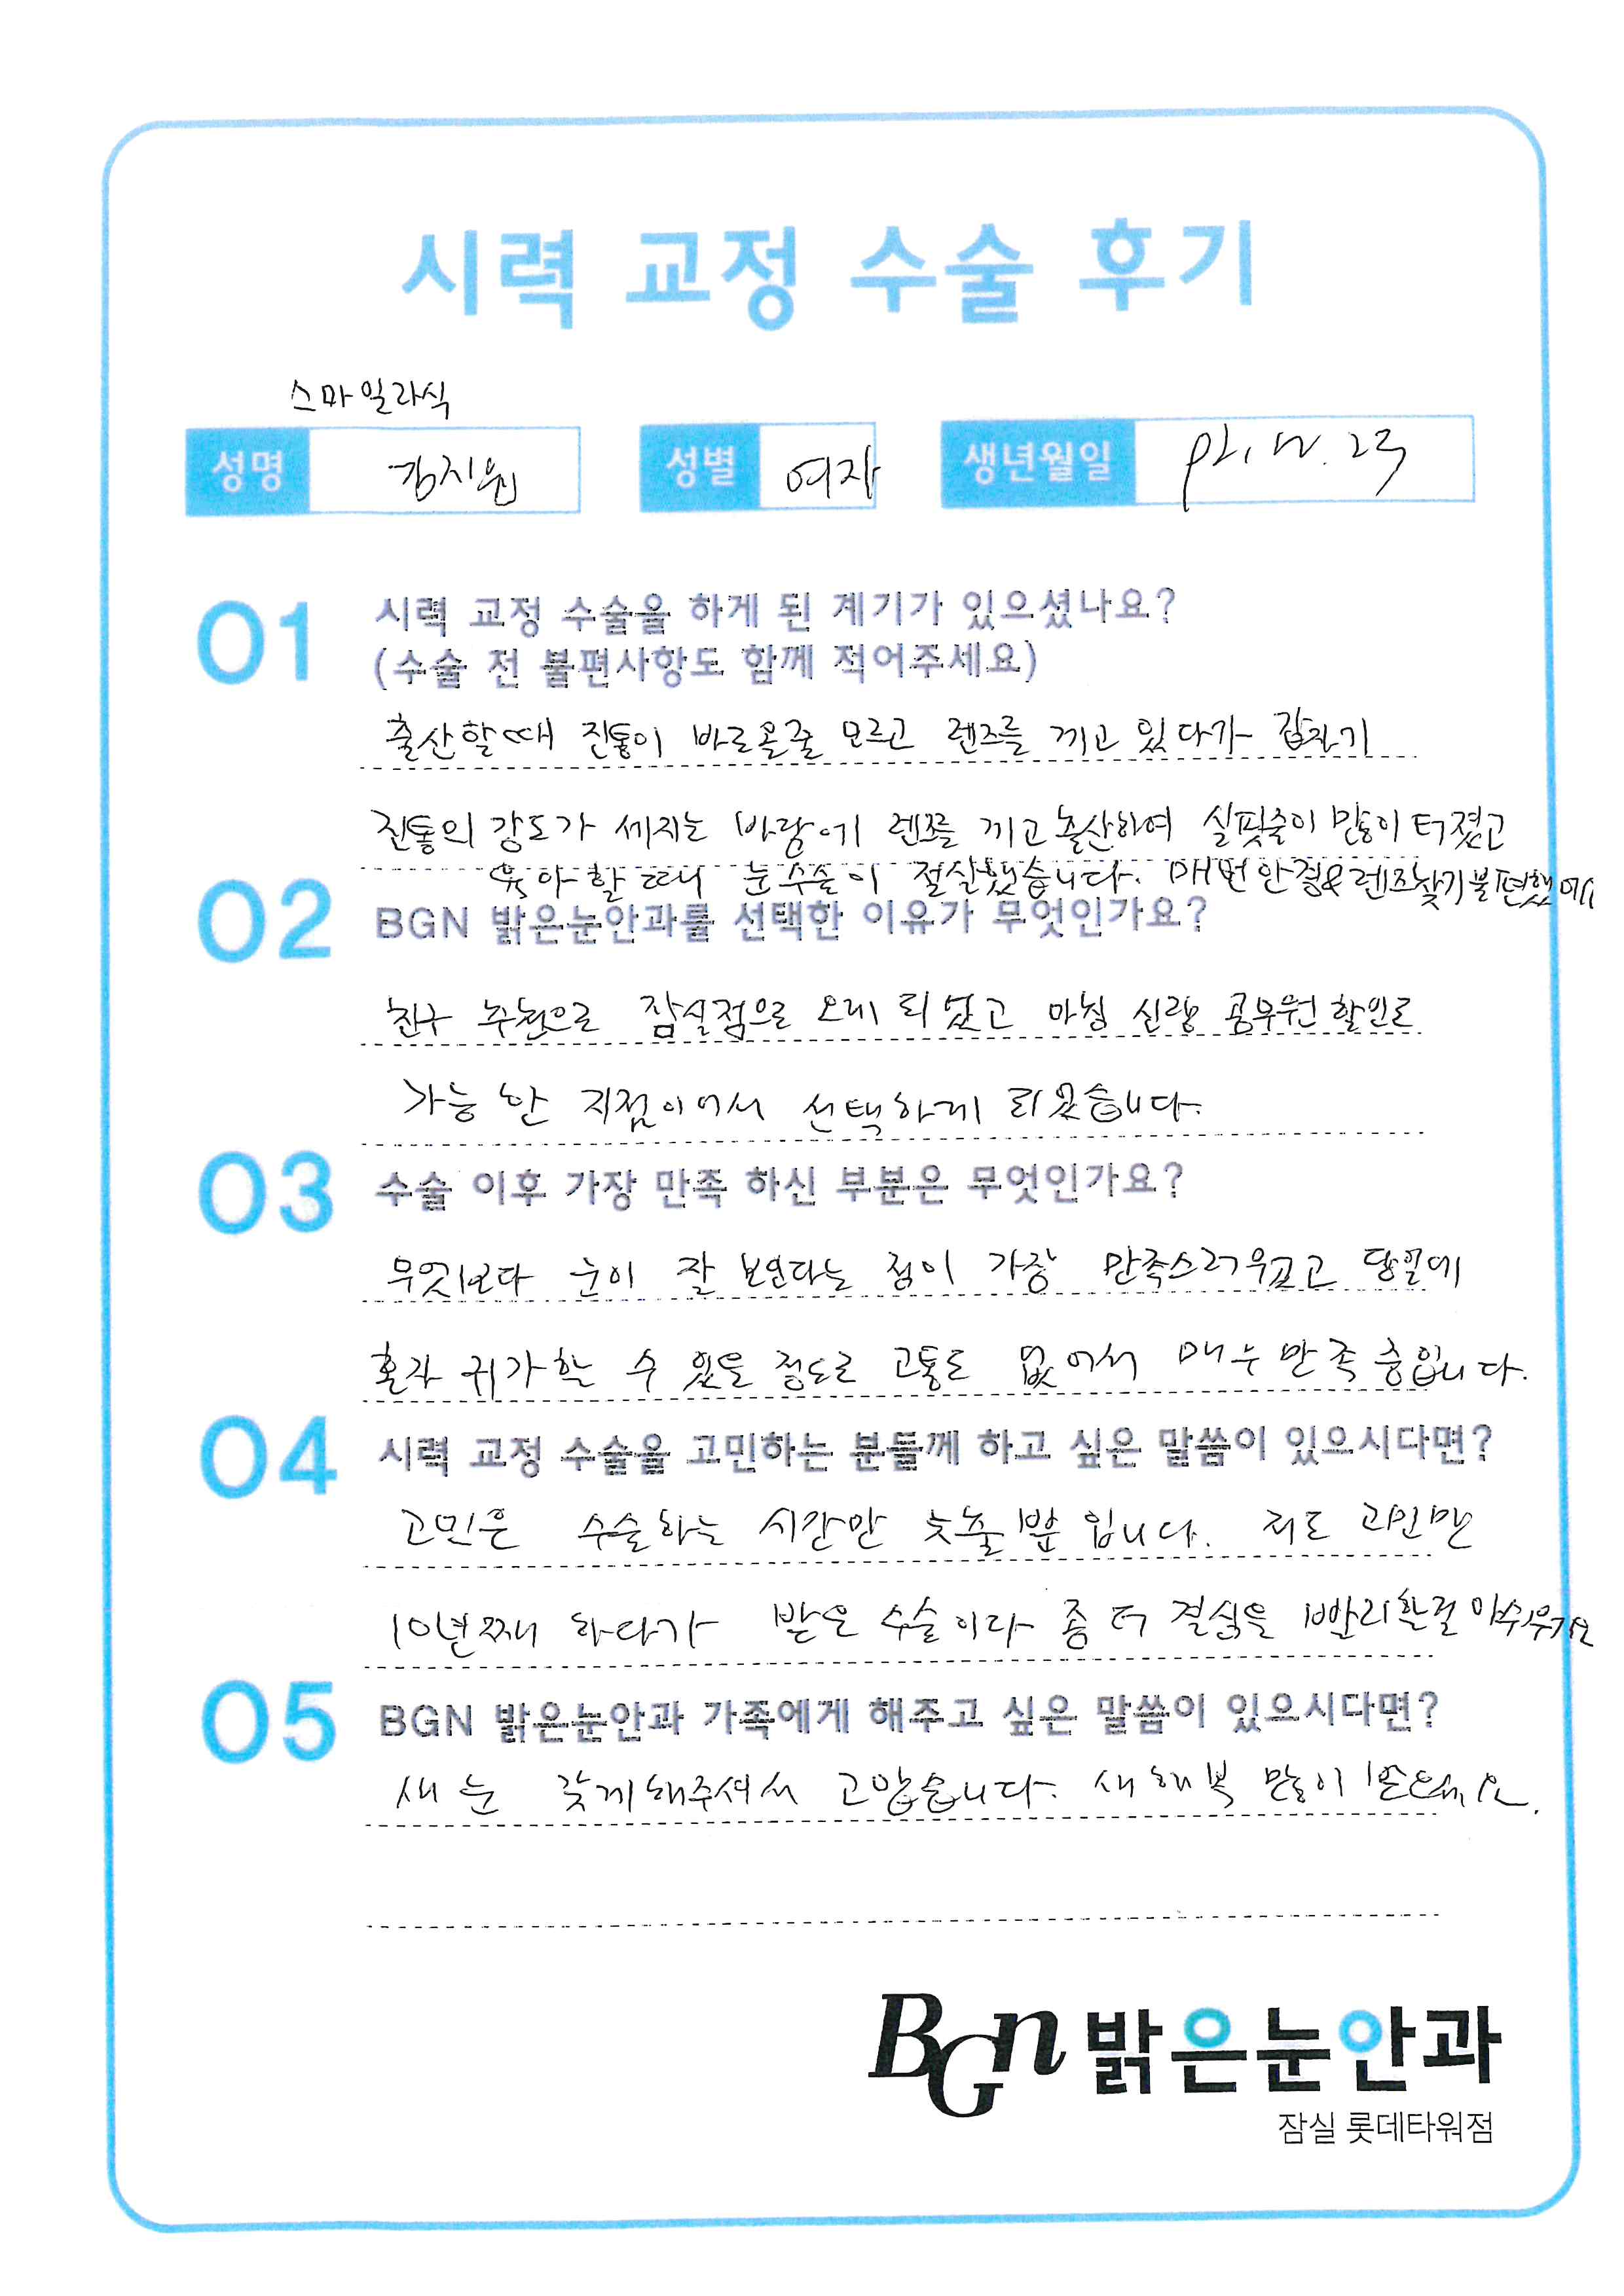 시력 교정 수술 후기
스마일라식
성명 김지원 성별 여자 생년월일 92. 12. 23
01 시력 교정 수술을 하게 된 계기가 있으셨나요?
(수술 전 불편사항도 함께 적어주세요)
출산할때 진통이 바로올줄 모르고 렌즈를 끼고 있다가 갑자기
진통의 강도가 세지는 바람에 렌즈를 끼고 출산하여 실핏줄이 많이 터졌고
육아할 때 눈수술이 절실했습니다. 매번 안경&렌즈찾기 불편했어요
02 BGN 밝은눈안과를 선택한 이유가 무엇인가요?
친구 추천으로 잠실점으로 오게 되었고 마침 신랑 공무원 할인도
가능한 지점이어서 선택하게 되었습니다.
03 수술 이후 가장 만족 하신 부분은 무엇인가요?
무엇보다 눈이 잘 보인다는 점이 가장 만족스러웠고 당일에
혼자 귀가할 수 있을 정도로 고통도 없어서 매우 만족 중입니다.
04 시력 교정 수술을 고민하는 분들께 하고 싶은 말씀이 있으시다면?
고민은 수술하는 시간만 늦출뿐입니다. 저도 고민만
10년째 하다가 받은 수술이라 좀 더 결심을 빨리할걸 아쉬워요
05 BGN 밝은눈안과 가족에게 해주고 싶은 말씀이 있으시다면?
새 눈 갖게해주셔서 고맙습니다. 새해 복 많이 받으세요.
BGN 밝은눈안과
잠실 롯데타워점